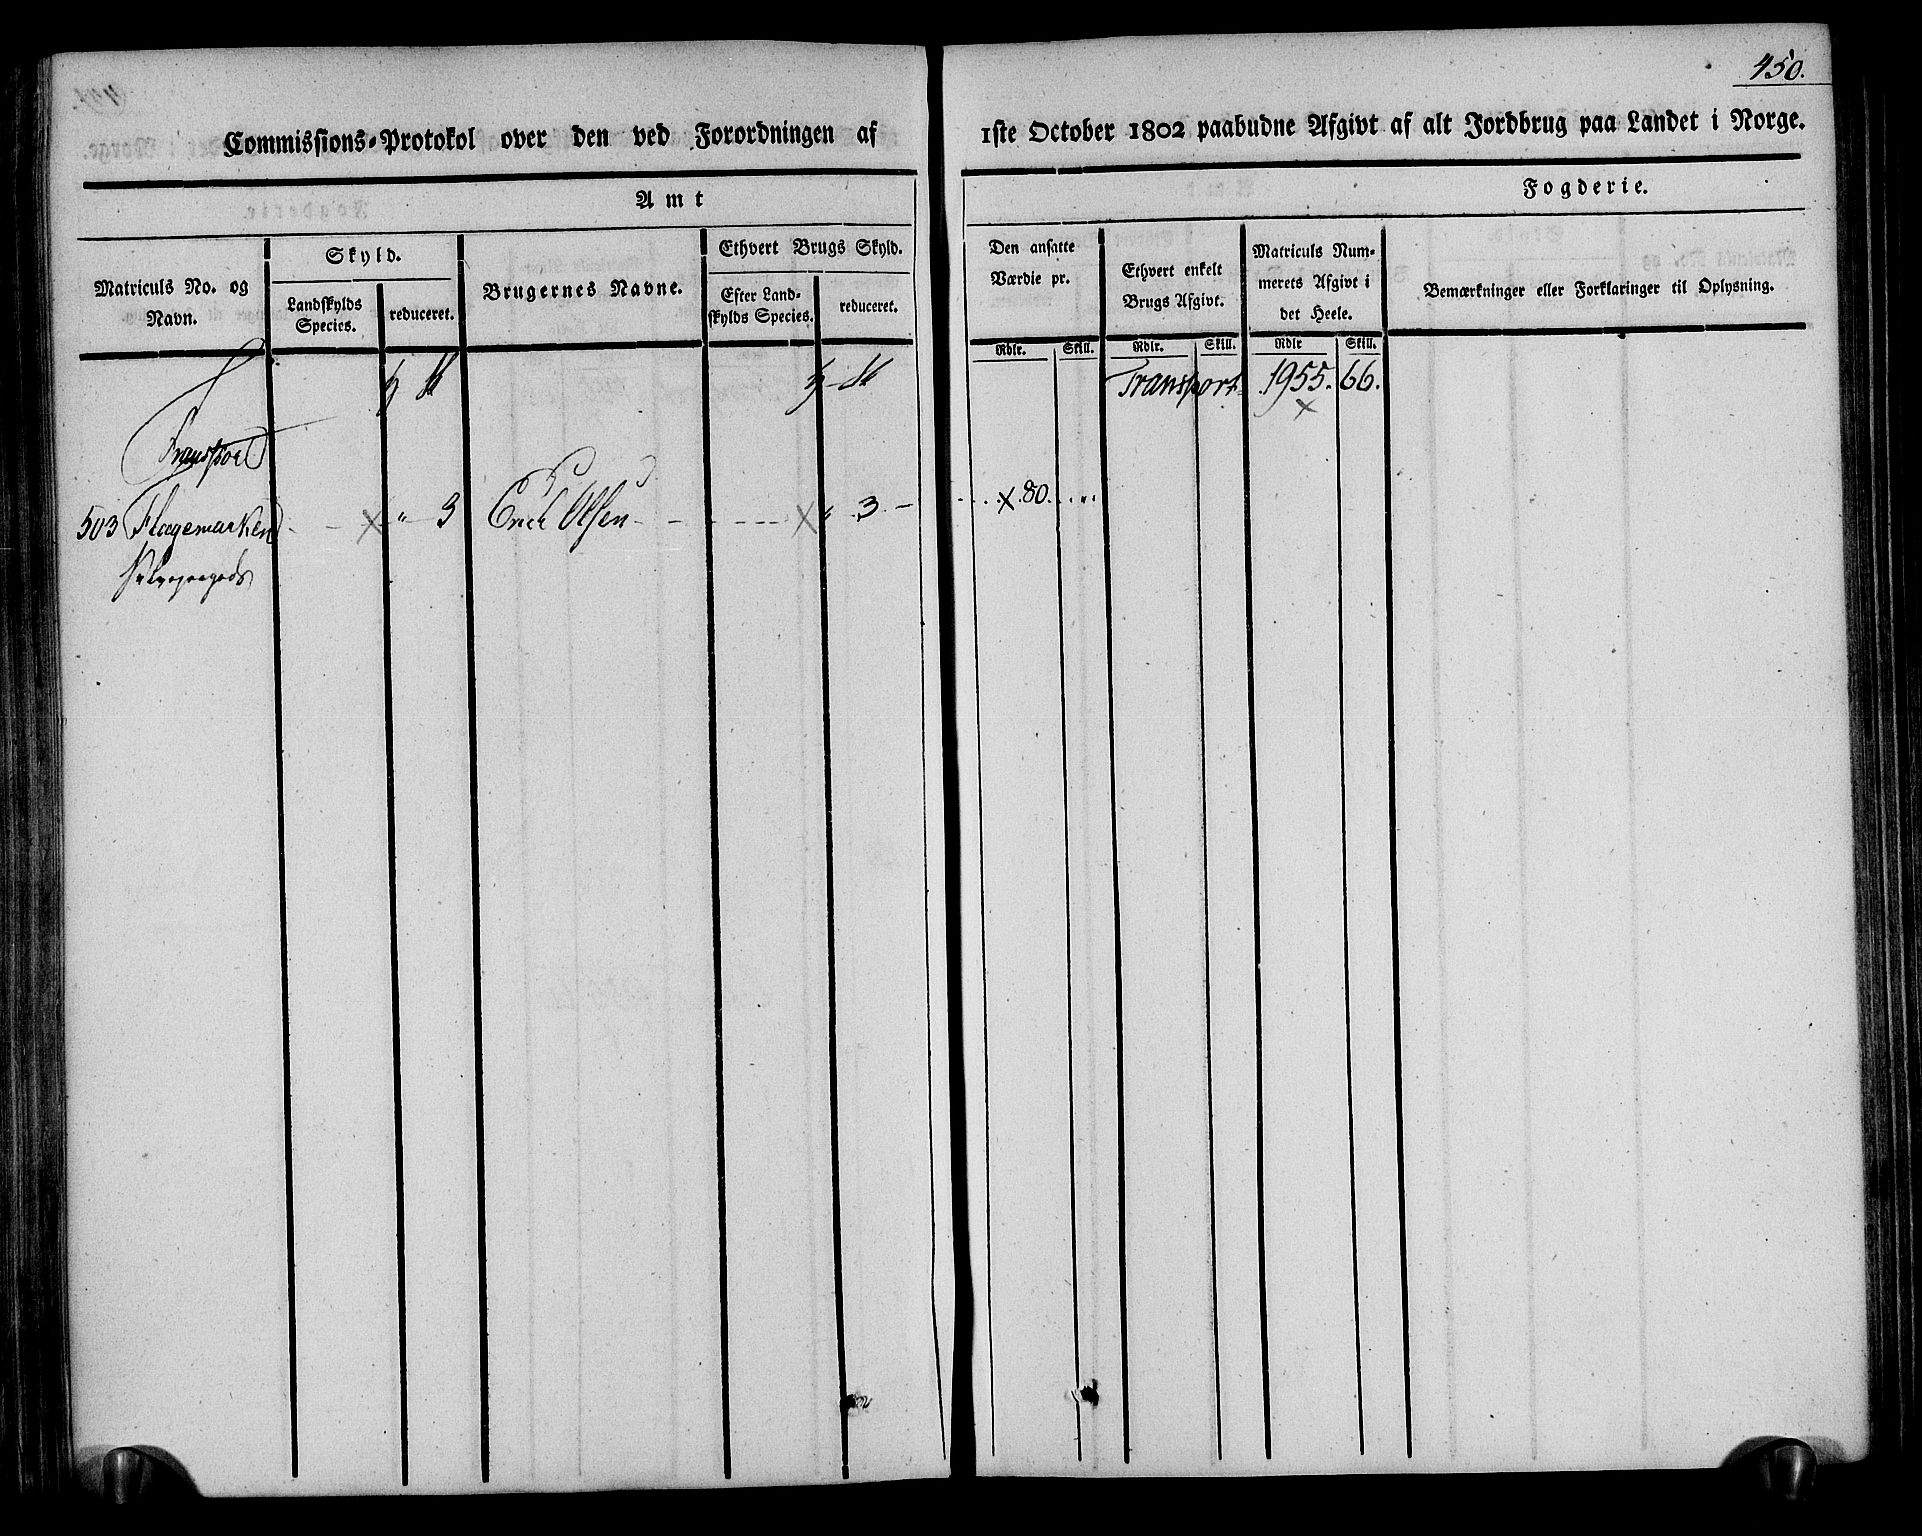 450.
Commissions-Protokol over den ved Forordningen af 1ste October 1802 paabudne Afgivt af alt Jordbrug paa Landet i Norge.
Amt Fogderie.
Matriculs No. og Navn.
Skyld.
Landskylds Species.
reduceret.
Brugernes Navne.
Ethvert Brugs Skyld.
Efter Landskylds Species.
reduceret.
Den ansatte Værdie pr.
Rdlr. Skill.
Ethvert enkelt Brugs Afgivt.
Rdlr. Skill.
Matriculs Nummerets Afgivt i det Heele.
Rdlr Skill.
Bemærkninger eller Forklaringer til Oplysning.
Transport 1955. 66.
Transport
503 Flagemarken - - X " 3 Erich Olsen - - - - X " 3 - X 80 . "